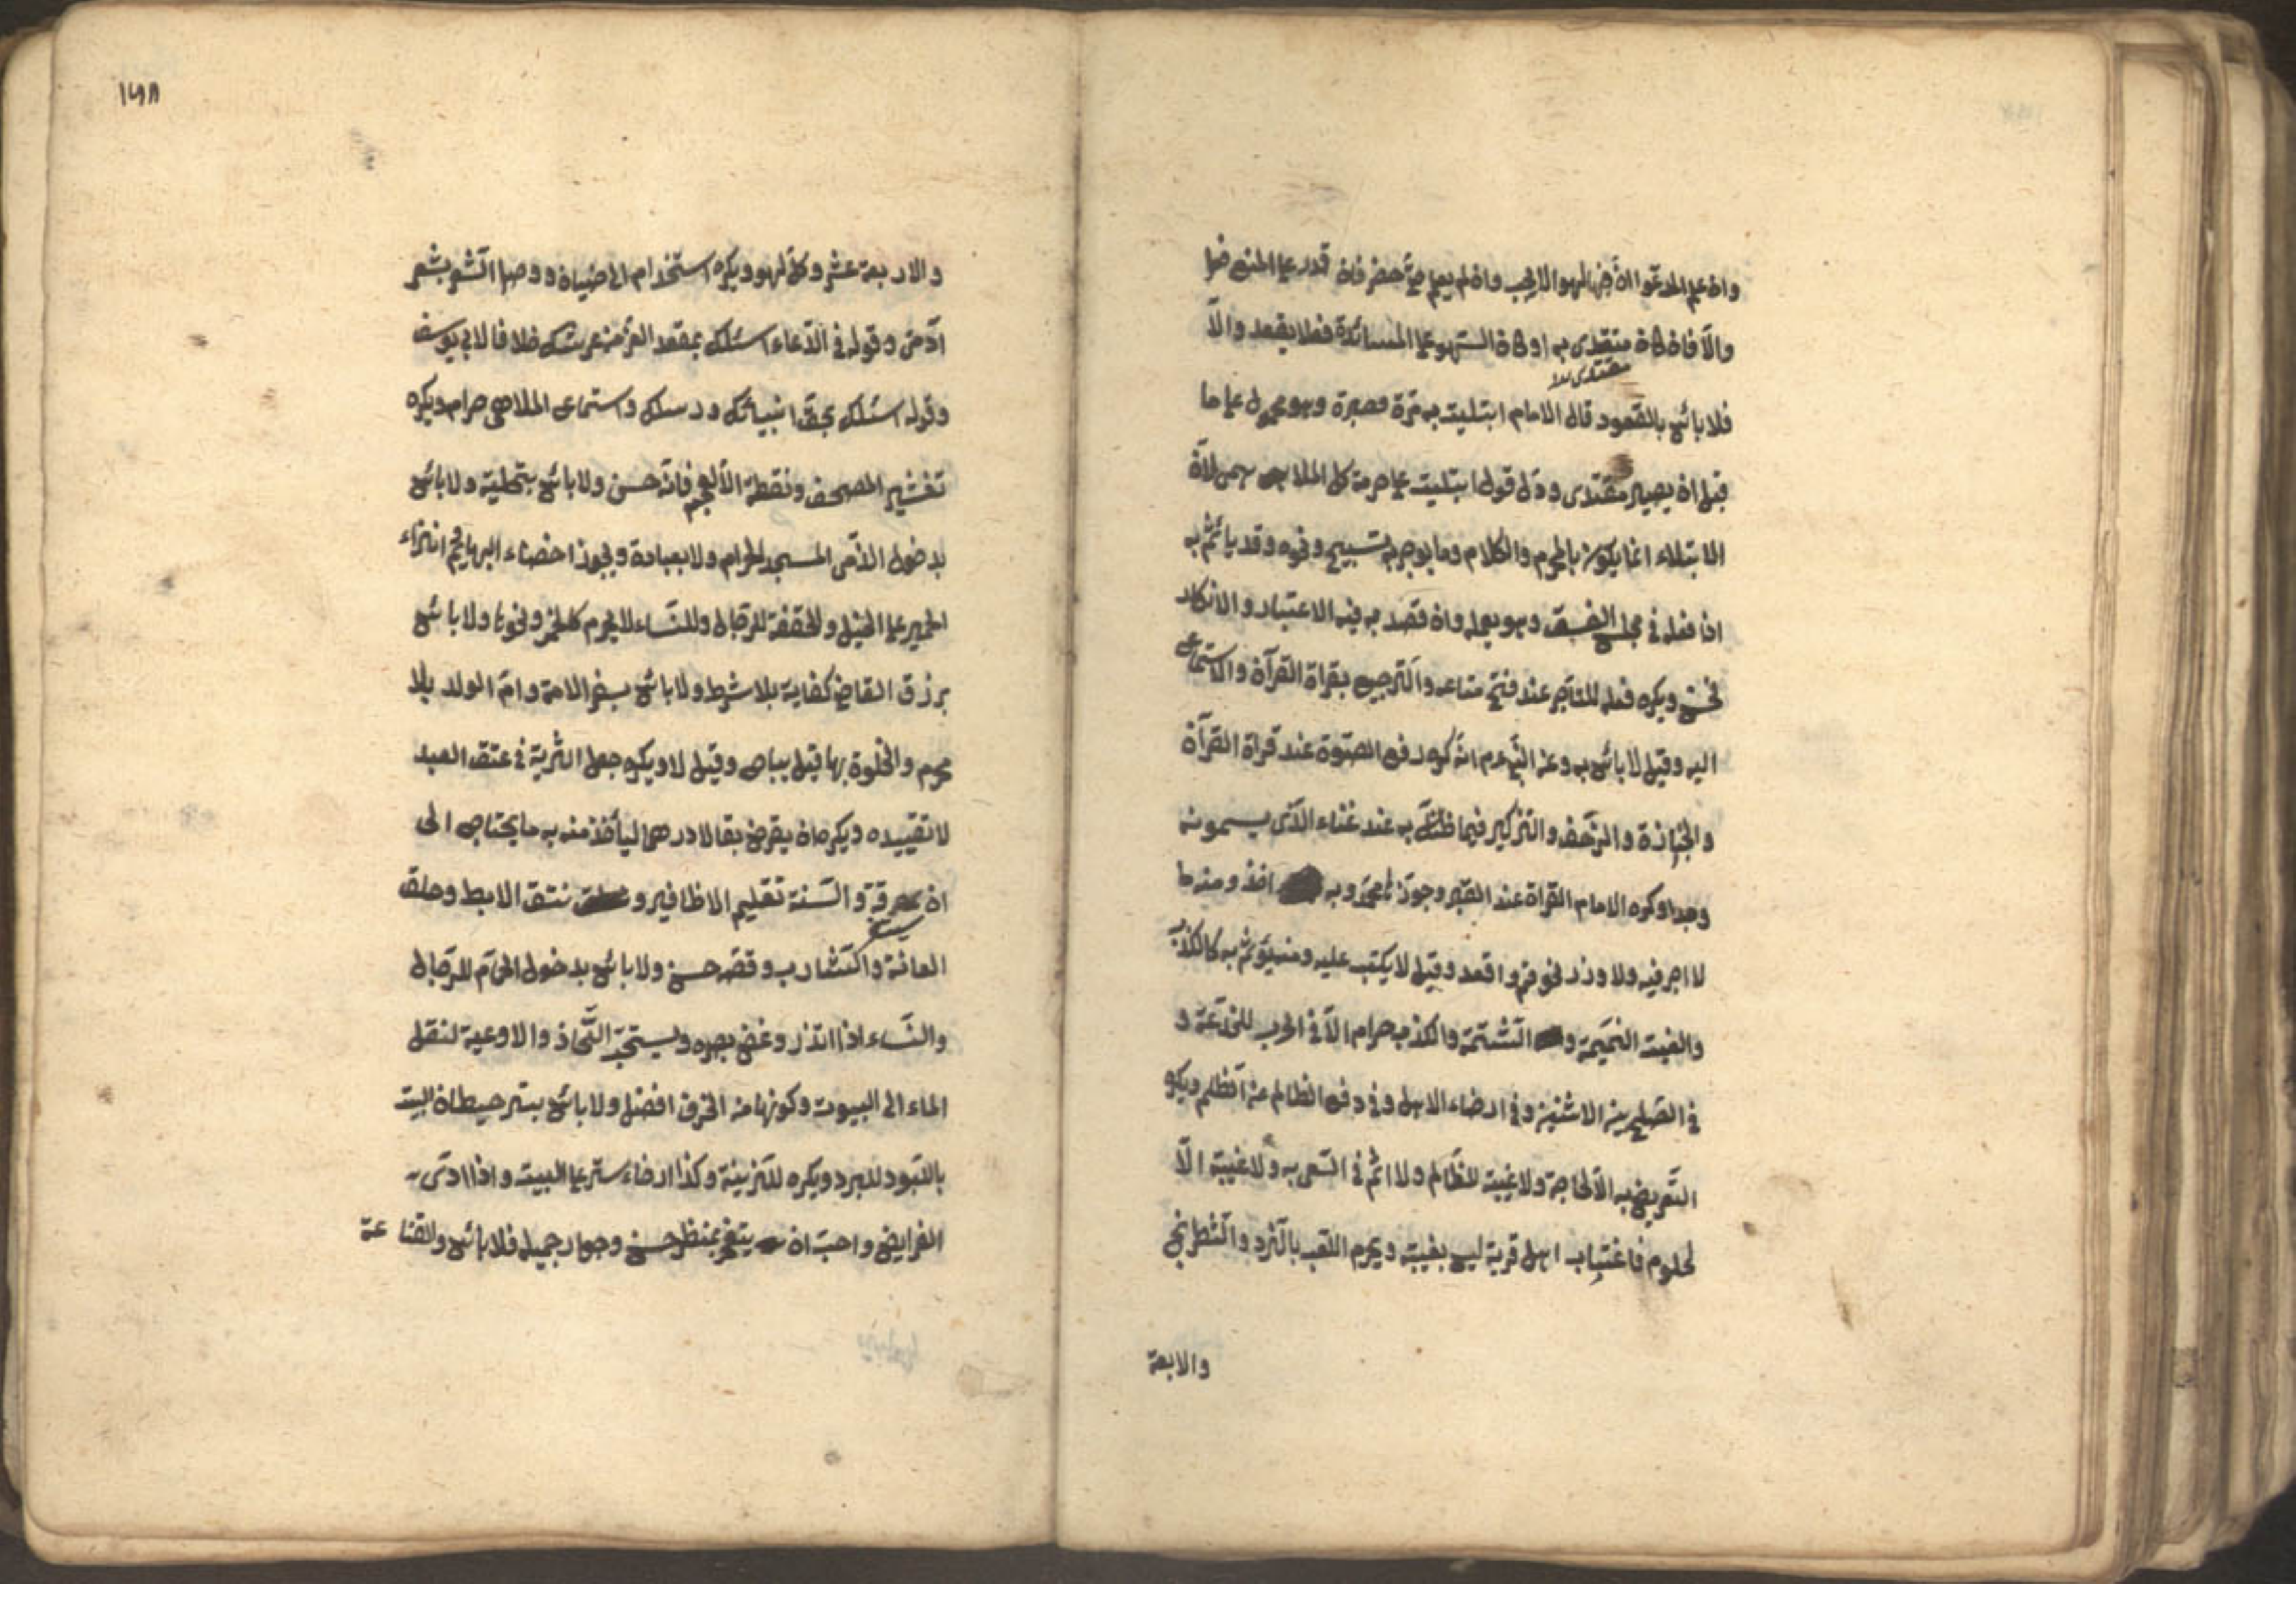 وان علم المدعو ان فيها لهوا لا يجب وان لم يعلم حتى حضر فان قدر على المنع فعل
والا فان كان مقتدى به او كان اللهو على المائدة فلا يقعد والا
مقتدى
فلا بأس بالقعود قال الامام ابتليت به مرة فصبرت وهو محمول على ما
قبل ان يصير مقتدى ودل قوله ابتليت على حرمة كل الملاهي لان
الابتلاء انما يكون بالمحرم والكلام وما يوجر به تسبيح ونحوه وقد يأثم به
اذا فعله في مجلس الفسق وهو يعمله وان قصد به فيه الاعتبار والانكار
فحسن ويكره فعله للتاجر عند فتح متاعه والترجيع بقراة القرآن والاستماع
اليه وقيل لا بائس به وعن النبي عم انه كره رفع الصوت عند قراة القرآن
والجنازة والزحف والتذكير فما ظنك به عند غناء الذي يسمونه
وجدا وكره الامام القراة عند القبر وجوز محمد وبه اخذ ومنه ما
لا اجر فيه ولا وزر نحو قم واقعد وقيل لا يكتب عليه ومنه يؤثم به كالكذب
والغيبة النميمة والشتمة والكذب حرام الا في الحرب للخدعة و
في الصلح بين الاثنين وفي ارضاء الاهل وفي دفع الظالم عن الظلم ويكره
التعريض به الا لحاجة ولا غيبة للظالم ولا اثم في السعي به ولا غيبة الا
لمعلوم فاغتياب اهل قرية ليس بغيبة ويحرم اللعب بالنرد والشطرنج
والاربعة
١٤٨
والاربعة عشر وكل لهو ويكره استخدام الخصيان ووصل الشعر بشعر
آدمي وقوله في الدعاء اسئلك بمقعد العز من عرشك خلافا لابي يوسف
وقوله اسئلك بحق انبيائك ورسلك واستماع الملاهي حرام ويكره
تعشير المصحف ونقطه الا للعجم فانه حسن ولا بائس بتحليته ولا بائس
بدخول الذمي المسجد الحرام ولا بعيادة ويجوز اخصاء البهايم وانزاء
الحمير على الخيل والحقنة للرجال وللنساء لا بمحرم كالخمر ونحوها ولا بائس
برزق القاضي كفاية بلا شرط ولا بائس بسفر الامة وام الولد بلا
محرم والخلوة بها قيل يباح وقيل لا ويكره جعل الراية في عنق العبد
لا تقييده ويكره ان يقرض بقالا درهما ليأخذ منه به ما يحتاج الى
ان يستغرقه والسنة تقليم الاظافير ونتف الابط وحلق
العانة والشارب وقصه حسن ولا بائس بدخول الحمام للرجال
والنساء اذا اتزر وغض بصره ويستحب اتخاذ الاوعية لنقل
الماء الى البيوت وكونها من الخزف افضل ولا بائس بستر حيطان البيت
باللبود للبرد ويكره للزينة وكذا ارخاء ستر على البيت واذا ادى
الفرايض واحب ان يتنعم بمنظر حسن وجوار جميلة فلا بائس والقناعة